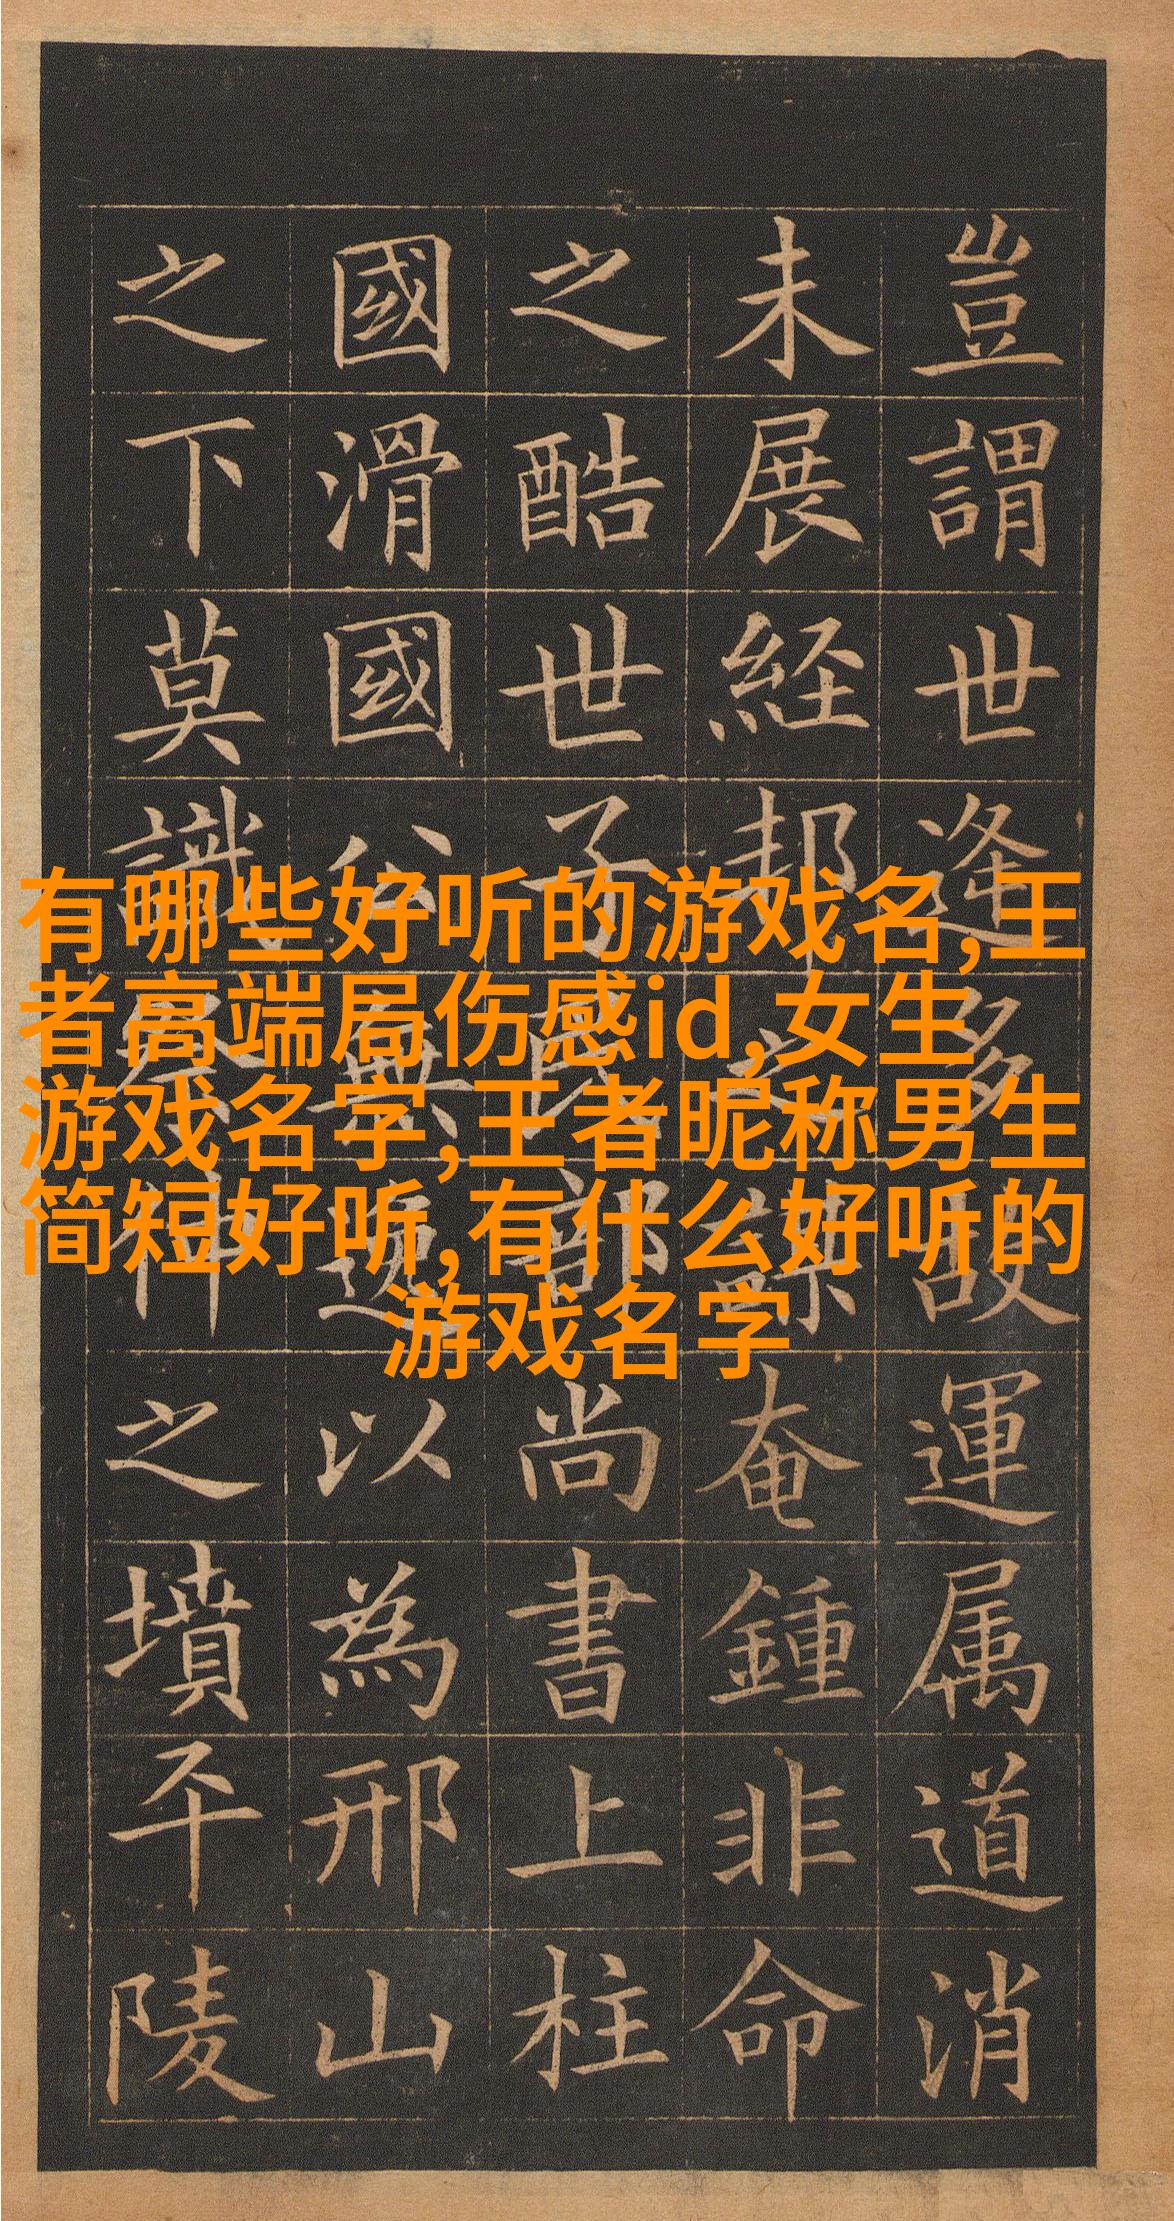 豈謂世逢多故運属道消
未展経邦之謀奄鍾非命
之酷世子民部尚書上柱
國滑國公無逸以為邢山
之下莫識祭仲之墳平陵
有哪些好听的游戏名,王
者高端局伤感id,女生
游戏名字,王者昵称男生
简短好听,有什么好听的
游戏名字